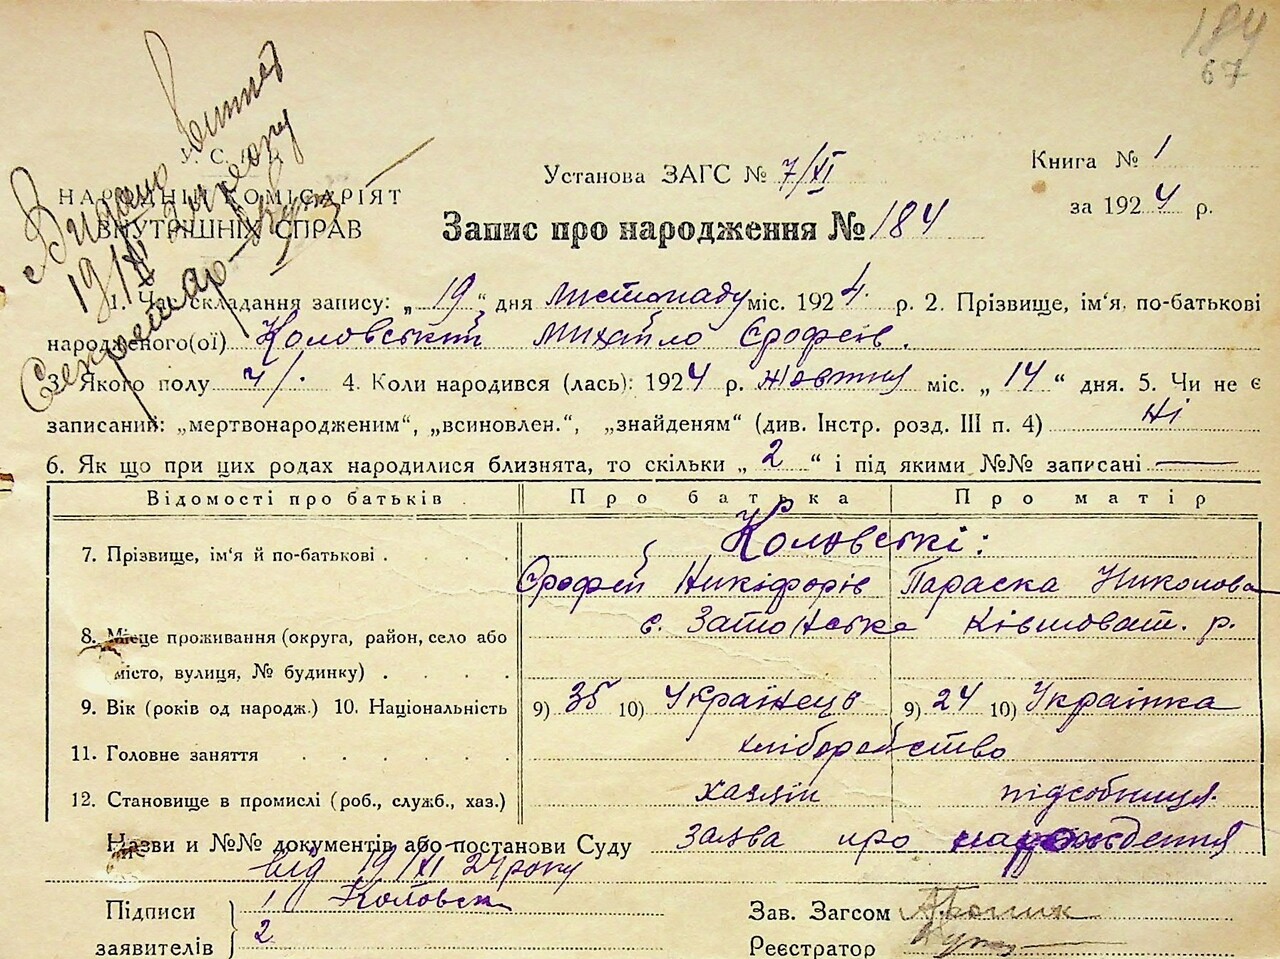 184
67
Видано витяг
19/XI 24 року
Секретар
У. С. Р. Р.
НАРОДНІЙ КОМІСАРІЯТ
ВНУТРІШНІХ СПРАВ
Установа ЗАГС № 7/XI
Книга № 1
за 1924 р.
Запис про народження № 184
1. Час складання запису: „ 19 „ дня листопаду міс. 1924. р. 2. Прізвище, ім‘я, по-батькові
народженого(ої) Коловський Михайло Єрофеїв.
3. Якого полу ч/. 4. Коли народився (лась): 1924 р. жовтня міс. „ 14 “ дня. 5. Чи не є
записаний: „мертвонародженим“, „всиновлен.“, „знайденям“ (див. Інстр. розд. III п. 4) ні
6. Як що при цих родах народилися близнята, то скільки „ 2 “ і під якими №№ записані —
Відомості про батьків Про батька Про матір
7. Прізвище, ім‘я й по-батькові . . . . Коловські:
Єрофей Никіфорів Параска Николова
8. Місце проживання (округа, район, село або с. Затонське Ківшоват. р.
місто, вулиця, № будинку) . . . .
9. Вік (років од народж.) 10. Національність 9) 35 10) Українець 9) 24 10) Українка
11. Головне заняття . . . . . . хліборобство
12. Становище в промислі (роб., служб., хаз.) хазяїн підсобниця.
Назви и №№ документів або постанови Суду заява про народждення
від 19/XI 24 року
Підписи 1 Коловск
заявителів 2
Зав. Загсом
Реєстратор